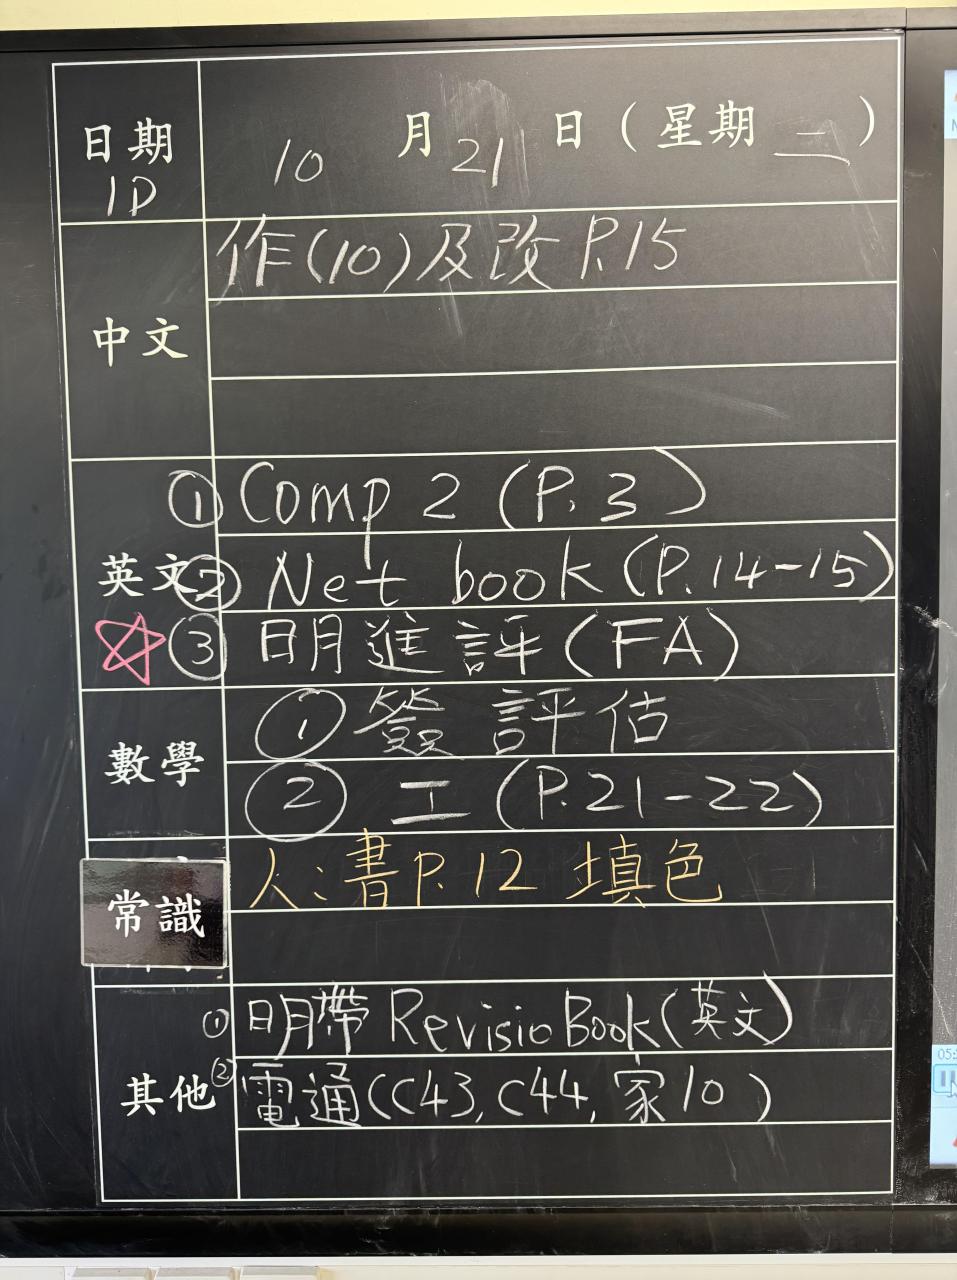 日期 10 月 21 日 ( 星期 二 )
1D
中文
作(10)及改 P.15
英文
① Comp 2 (P. 3)
② Net book (P.14-15)
③ 明進評 (FA)
數學
① 簽 評估
② 工 (P.21-22)
常識
人:書P.12 填色
其他
① 明帶 Revisio Book (英文)
② 電通 (C43, C44, 家10)